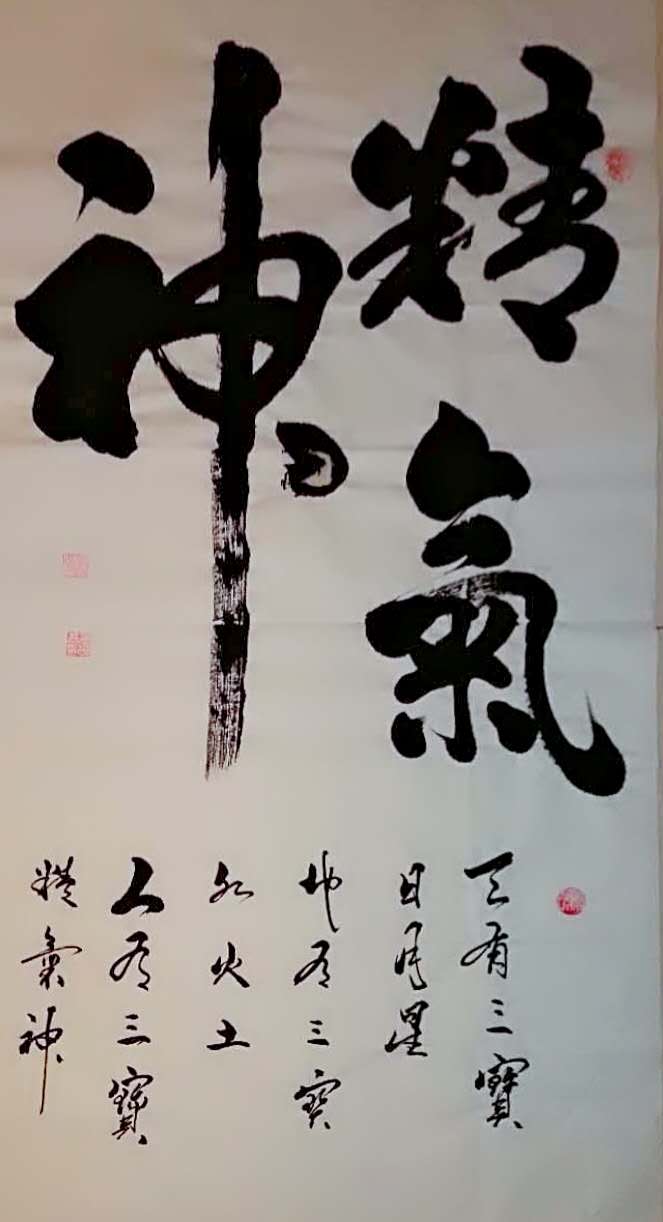 精氣
神
天有三寶
日月星
地有三宝
水火土
人有三寶
精氣神